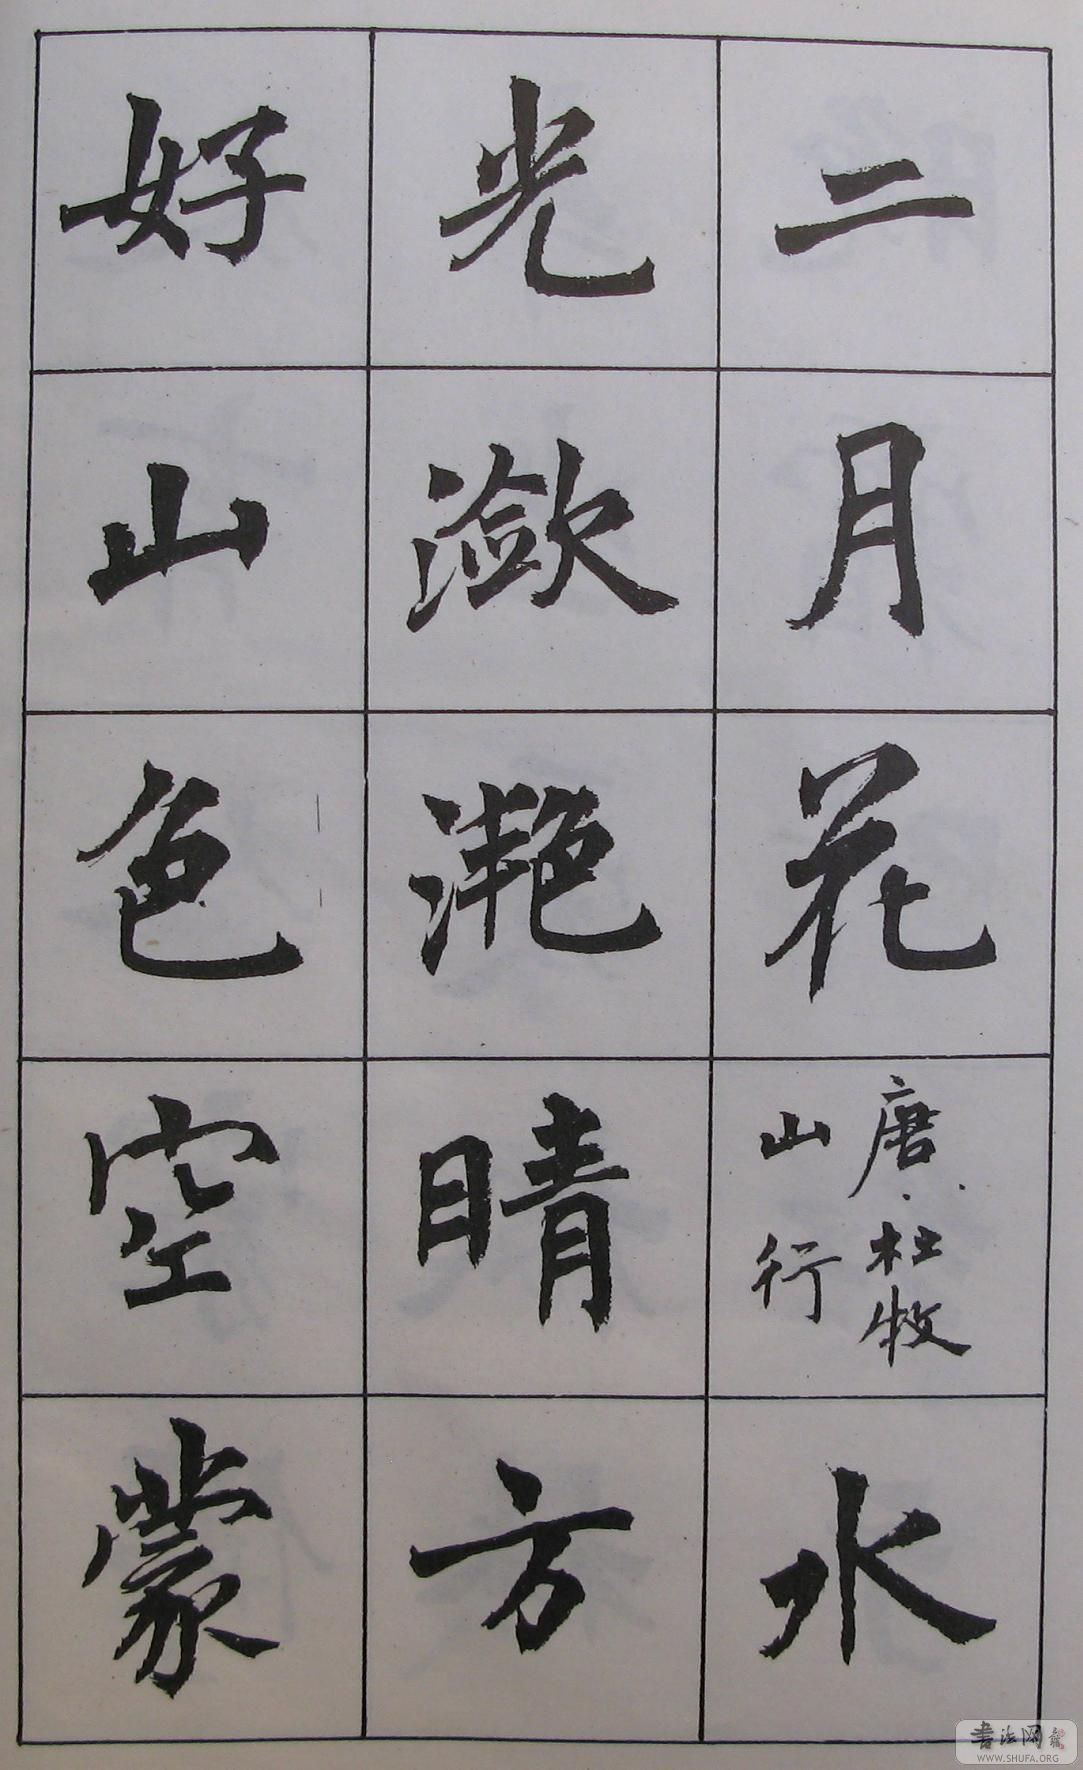 二月花
唐·杜牧
山行
水
光潋滟晴方
好山色空蒙
書法网
WWW.SHUFA.ORG